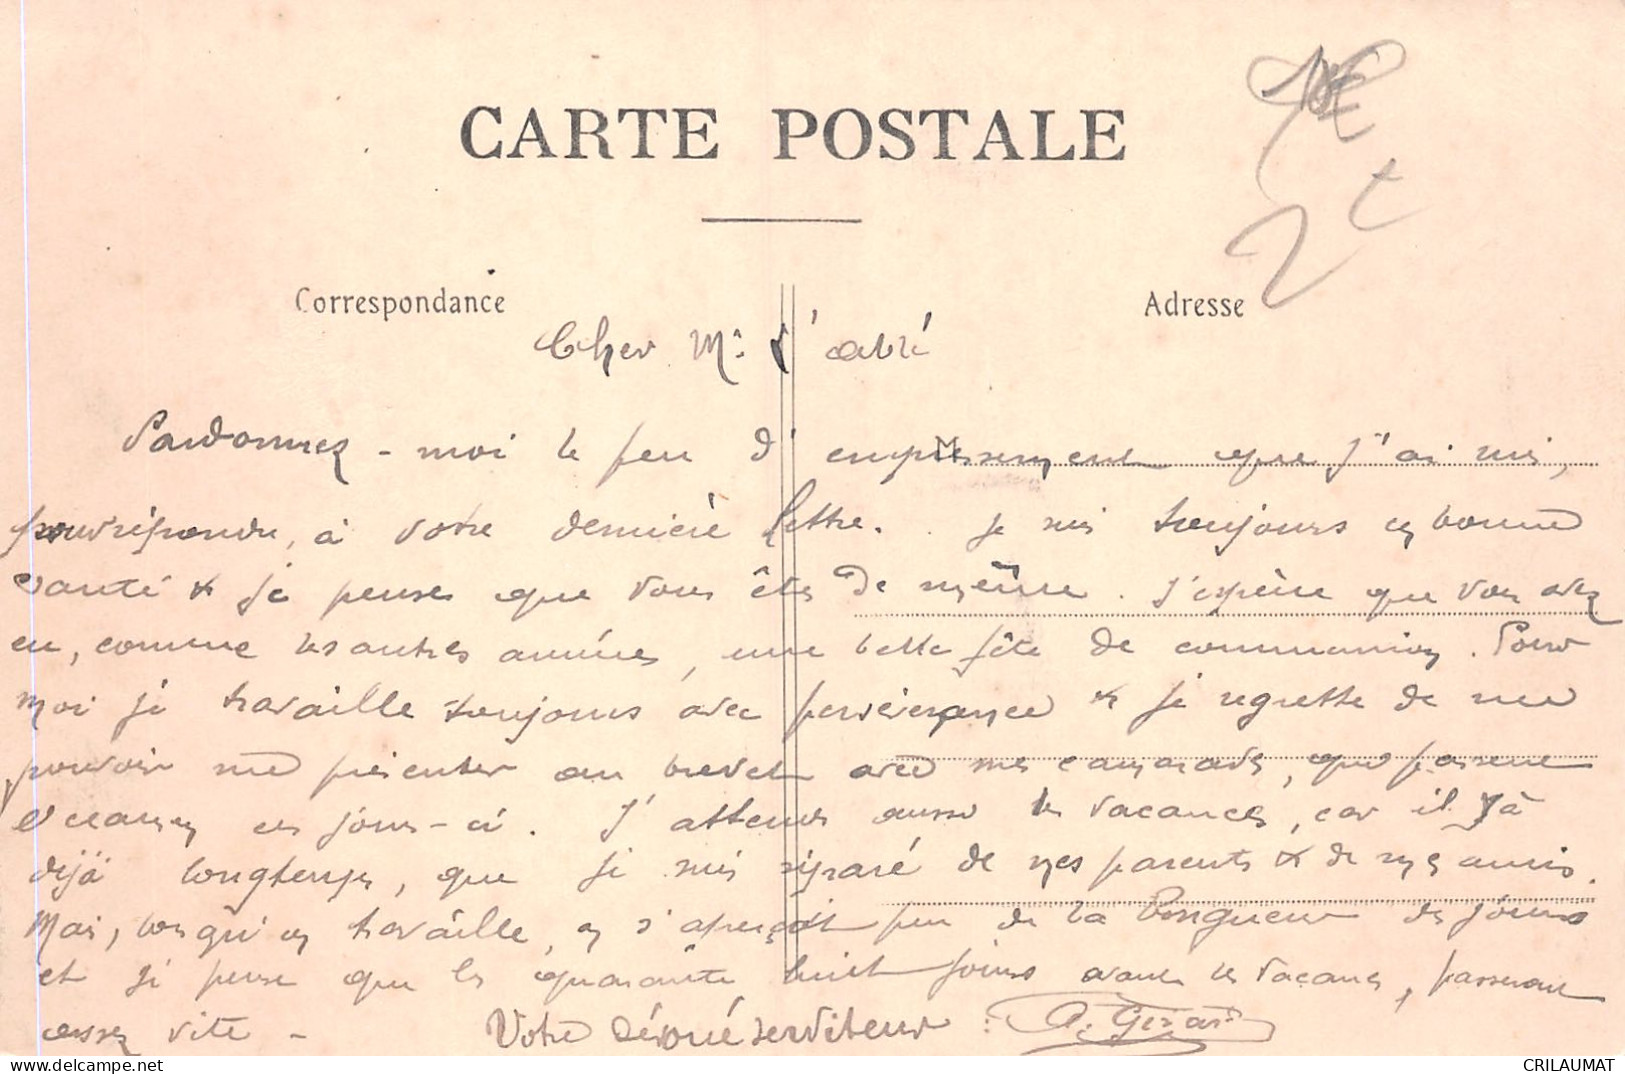 CARTE POSTALE
Correspondance
Adresse
2
Cher Mr l'abbé
Pardonnez-moi le peu d'empressement que j'ai mis,
pour répondre, à votre dernière lettre. Je suis toujours en bonne
santé & je pense que vous êtes de même. J'espère que vous avez
eu, comme les autres années, une belle fête de communion. Pour
moi je travaille toujours avec persévérance & je regrette de ne
pouvoir me présenter au brevet avec mes camarades, que passent
examen ces jours-ci. J'attends aussi les vacances, car il y a
déjà longtemps, que je suis séparé de mes parents & de mes amis.
Mais, lorsqu'on travaille, on s'aperçoit peu de la longueur des jours
et je pense que les quarante huit jours avant les vacances, passeront
assez vite -
Votre dévoué serviteur : A. Gérard
CRILAUMAT